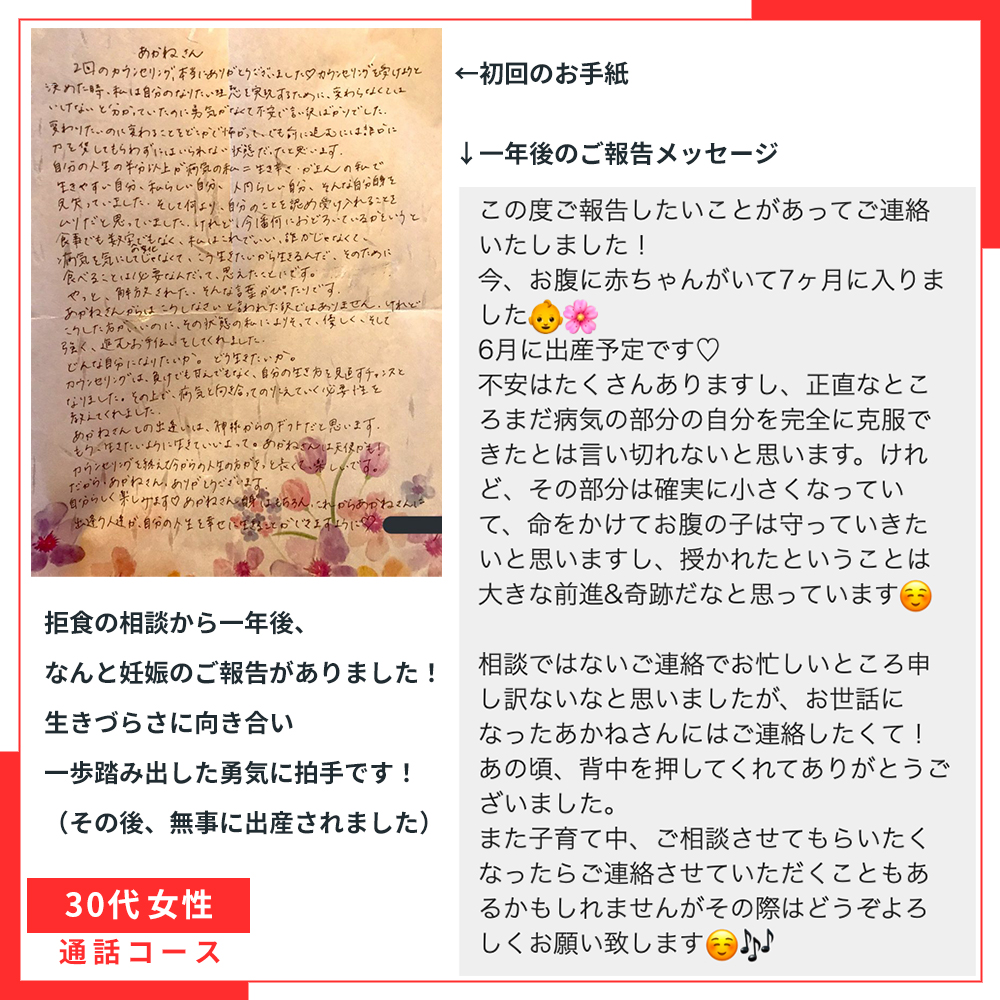 あかねさん
2回のカウンセリング本当にありがとうございました♡カウンセリングを受けようと
決めた時、私は自分のなりたい理想を実現するために、変わらなくては
いけないと分かっていたのに勇気がなくて不安で言い訳ばかりでした。
変わりたいのに変わることをどこかで怖がって、でも前に進むには誰かに
力を貸してもらわずにはいられない状態だったと思います。
自分の人生の半分以上が病気の私=生き辛さ
生きやすい自分、私らしい自分、人間らしい自分、そんな自分自身を
見失っていました。そして何より、自分のことを認め受け入れることを
ムリだと思っていました。けれど、今1番何におどろいているかというと
食事でも数字でもなく、私はこれでいい、誰かじゃなくて、
病気を気にしてじゃなくて、こう生きたいから生きるんだ、そのために
食べることは必要なんだって、思えたことにです。
やっと、解放された、そんな言葉がぴったりです。
あかねさんからはこうしなさいと言われた訳ではありません。けれど
こうした方がいいのに、その状態の私によりそって、優しく、そして
強く、進むお手伝いをしてくれました。
どんな自分になりたいか。どう生きたいか。
カウンセリングは、負けでも甘えでもなく、自分の生き方を見直すチャンスと
なりました。その上で、病気と向き合ってのりこえていく必要性を
教えてくれました。
あかねさんとの出逢いは、神様からのギフトだと思います。
もう、生きたいように生きていいよって。あかねさんは天使かも!
カウンセリングを終えて今からの人生の方がきっと長くて楽しいです。
だから、あかねさん、ありがとうございます。
自分らしく楽しみます♡あかねさん自身はもちろん、これからあかねさんに
出逢う人達が、自分の人生を幸せに生きることができますように♡
←初回のお手紙
↓一年後のご報告メッセージ
この度ご報告したいことがあってご連絡
いたしました！
今、お腹に赤ちゃんがいて7ヶ月に入りま
した👶🌸
6月に出産予定です♡
不安はたくさんありますし、正直なとこ
ろまだ病気の部分の自分を完全に克服で
きたとは言い切れないと思います。けれ
ど、その部分は確実に小さくなってい
て、命をかけてお腹の子は守っていきた
いと思いますし、授かれたということは
大きな前進&奇跡だなと思っています☺️
相談ではないご連絡でお忙しいところ申
し訳ないなと思いましたが、お世話に
なったあかねさんにはご連絡したくて！
あの頃、背中を押してくれてありがとうご
ざいました。
また子育て中、ご相談させてもらいたく
なったらご連絡させていただくこともあ
るかもしれませんがその際はどうぞよろ
しくお願い致します☺️🎶
拒食の相談から一年後、
なんと妊娠のご報告がありました！
生きづらさに向き合い
一歩踏み出した勇気に拍手です！
（その後、無事に出産されました）
30代 女性
通話コース